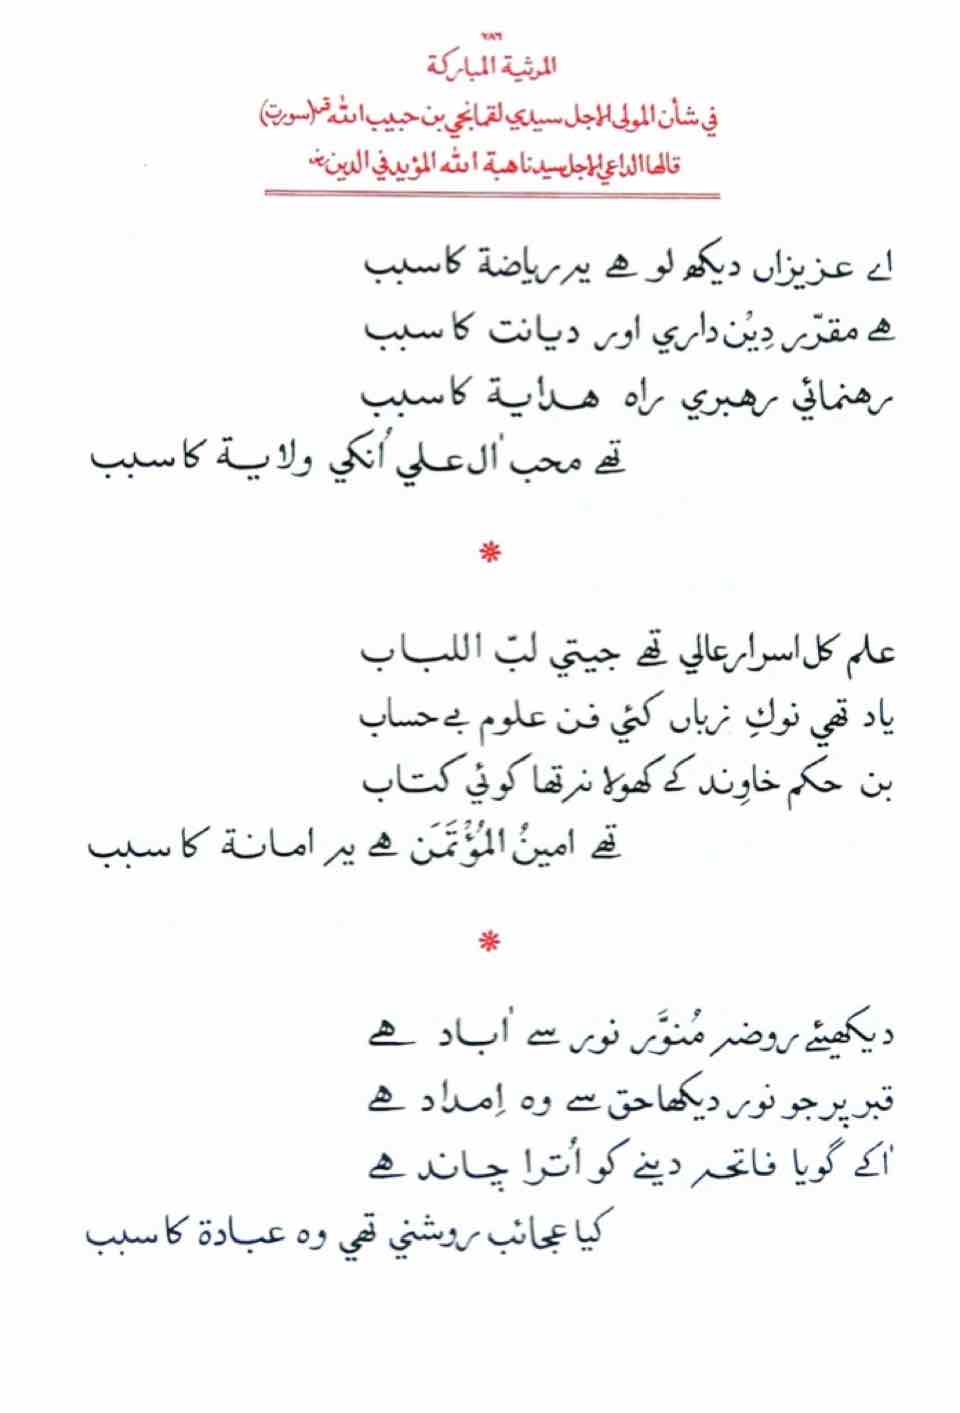 ٧٨٦
المرثية المباركة
في شأن المولى الاجل سيدي لقمانجي بن حبيب الله قس (سورت)
قالها الداعي الاجل سيدنا هبة الله المؤيد في الدين رض
اے عزيزاں ديكھ لو هے يہ رياضة كا سبب
هے مقرّر دِيْن داري اور ديانت كا سبب
رهنمائي رهبري راه هداية كا سبب
تھے محب اٰل علي اُنكي ولاية كا سبب
*
علم كل اسرار عالي تھے جيتي لبّ اللباب
ياد تھي نوكِ زباں كئي فن علوم بے حساب
بن حكم خاوِند كے كھولا نہ تھا كوئي كتاب
تھے امينُ المُؤْتَمَن هے يہ امانة كا سبب
*
ديكھيئے روضہ مُنوَّر نور سے اٰباد هے
قبر پر جو نور ديكھا حق سے وه اِمداد هے
اٰكے گويا فاتحہ دينے كو اُترا چاند هے
كيا عجائب روشني تھي وه عبادة كا سبب